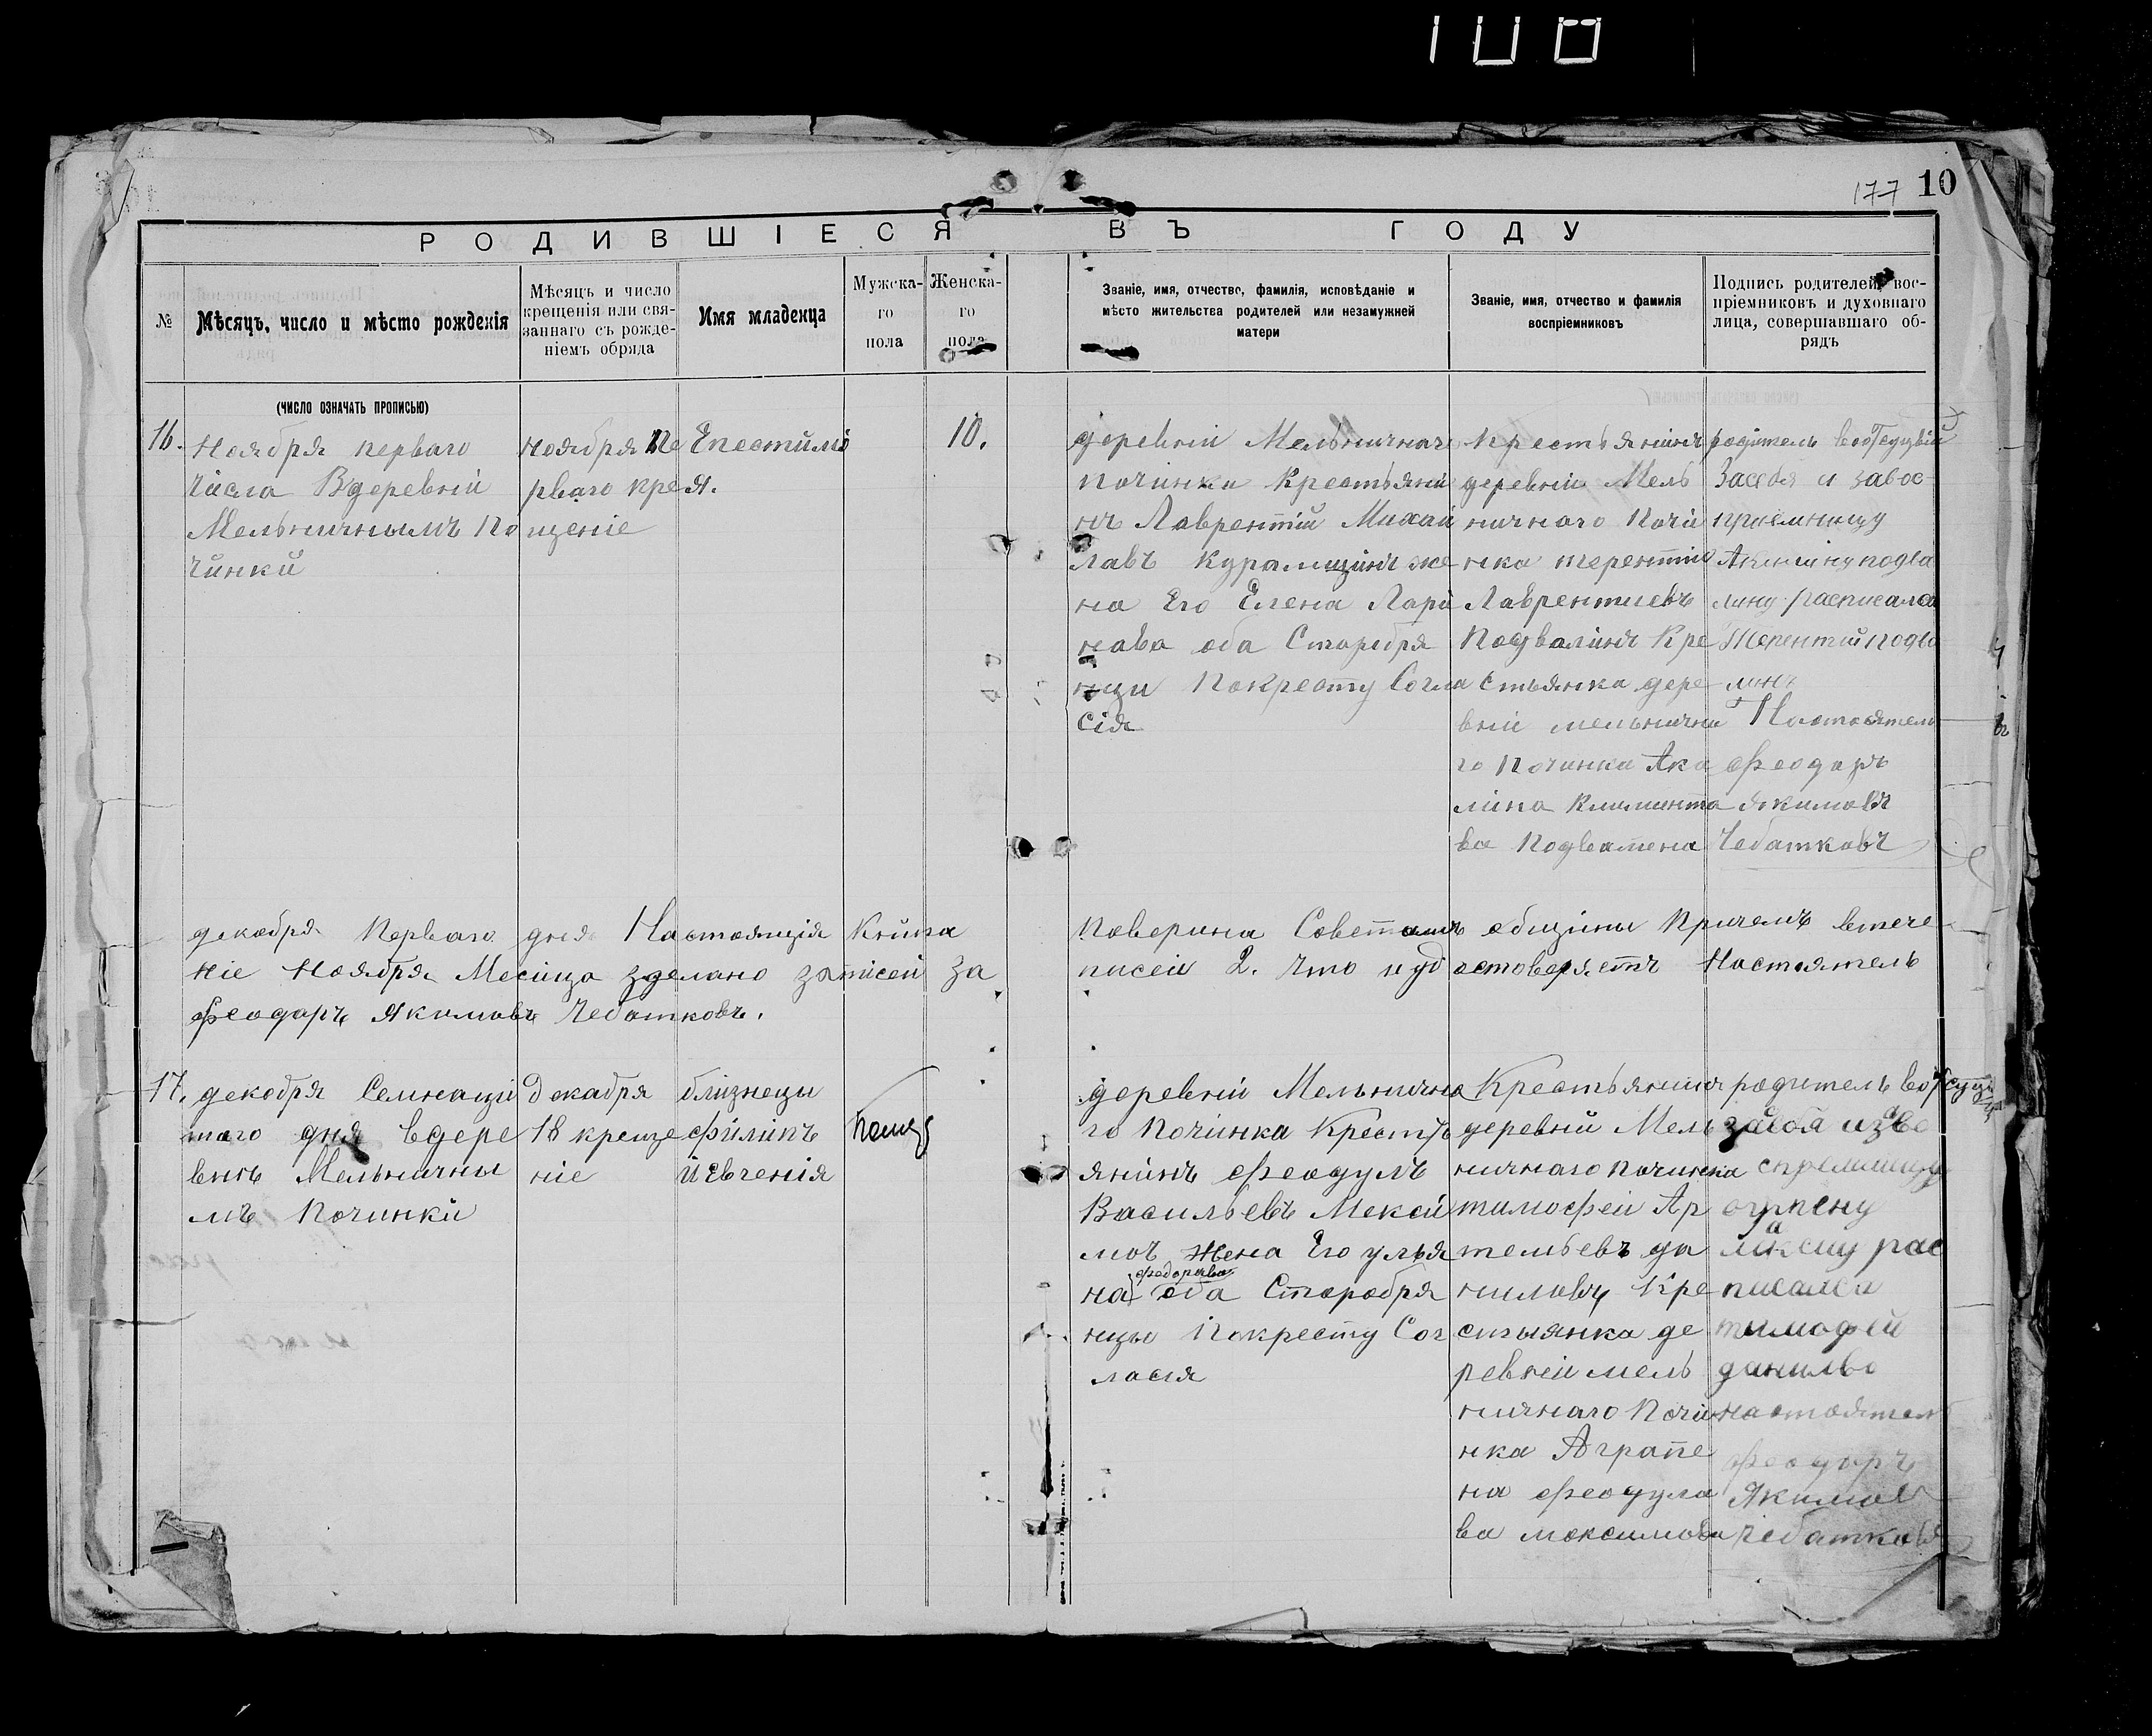 108
177 10
РОДИВШІЕСЯ ВЪ ГОДУ
№
Мѣсяцъ, число и мѣсто рожденія
Мѣсяцъ и число
крещенія или свя-
заннаго съ рожде-
ніемъ обряда
Имя младенца
Мужска-
го
пола
Женска-
го
пола
Званіе, имя, отчество, фамилія, исповѣданіе и
мѣсто жительства родителей или незамужней
матери
Званіе, имя, отчество и фамилія
воспріемниковъ
Подпись родителей, вос-
пріемниковъ и духовнаго
лица, совершавшаго об-
рядъ
(ЧИСЛО ОЗНАЧАТЬ ПРОПИСЬЮ)
16.
Ноября перваго
числа Вдеревній
Мельничнымъ По
чинкй
ноября Пе
рваго кре
щеніе
Епестимі
я.
10.
деревній Мельничнаг
починка Крестьяни
нъ Лаврентій Михаи
лавъ Курамщинъ же
на Его Елена Лари
нава оба Старобря
нци Покресту Согла
сія
Крестьянинъ
деревніи Мель
ничнаго Почи
нка терентіи
Лаврентиевъ
Подвалинъ Кре
стьянка дере
вніи мельнична
го Починка Аку
лина Климинта
ва
родитель
Засебя и завос
приемницу
Акулину подва
лину расписалса
Терентий подва
линъ
Настоятель
феодаръ
якимовъ
Чебатковъ
декабря Перваго дня Настоящія Книга поверина Советамъ общины Причемъ втече
ніе Ноября Месица зделано записей За писеи 2. Что и удостоверяетъ Настоятель
феодаръ Якимовъ Чебатковъ.
17.
декобря Семнаци
таго дня вдере
внъ Мельничны
мъ Починки
декабря
18 креще
ніе
близнецы
филипъ
й Евгенія
деревній Мельнична
го Починка Кресть
янинъ феодулъ
Васильевъ Макси
мовъ жена Его улья
федорава
на оба Старобря
нцы Покресту Сог
ласія
Крестьянинъ
деревній Мель
ничнаго Починка
тимофеи Ар
темьевъ да
ниловъ Кре
стьянка де
ревніи мель
ничнаго Почи
нка Аграпе
на феодула
ва максимова
родитель
засебя
огрпену
рас
писался
тимофей
данилво
настоятель
феодаръ
Якимов
Чебатковъ